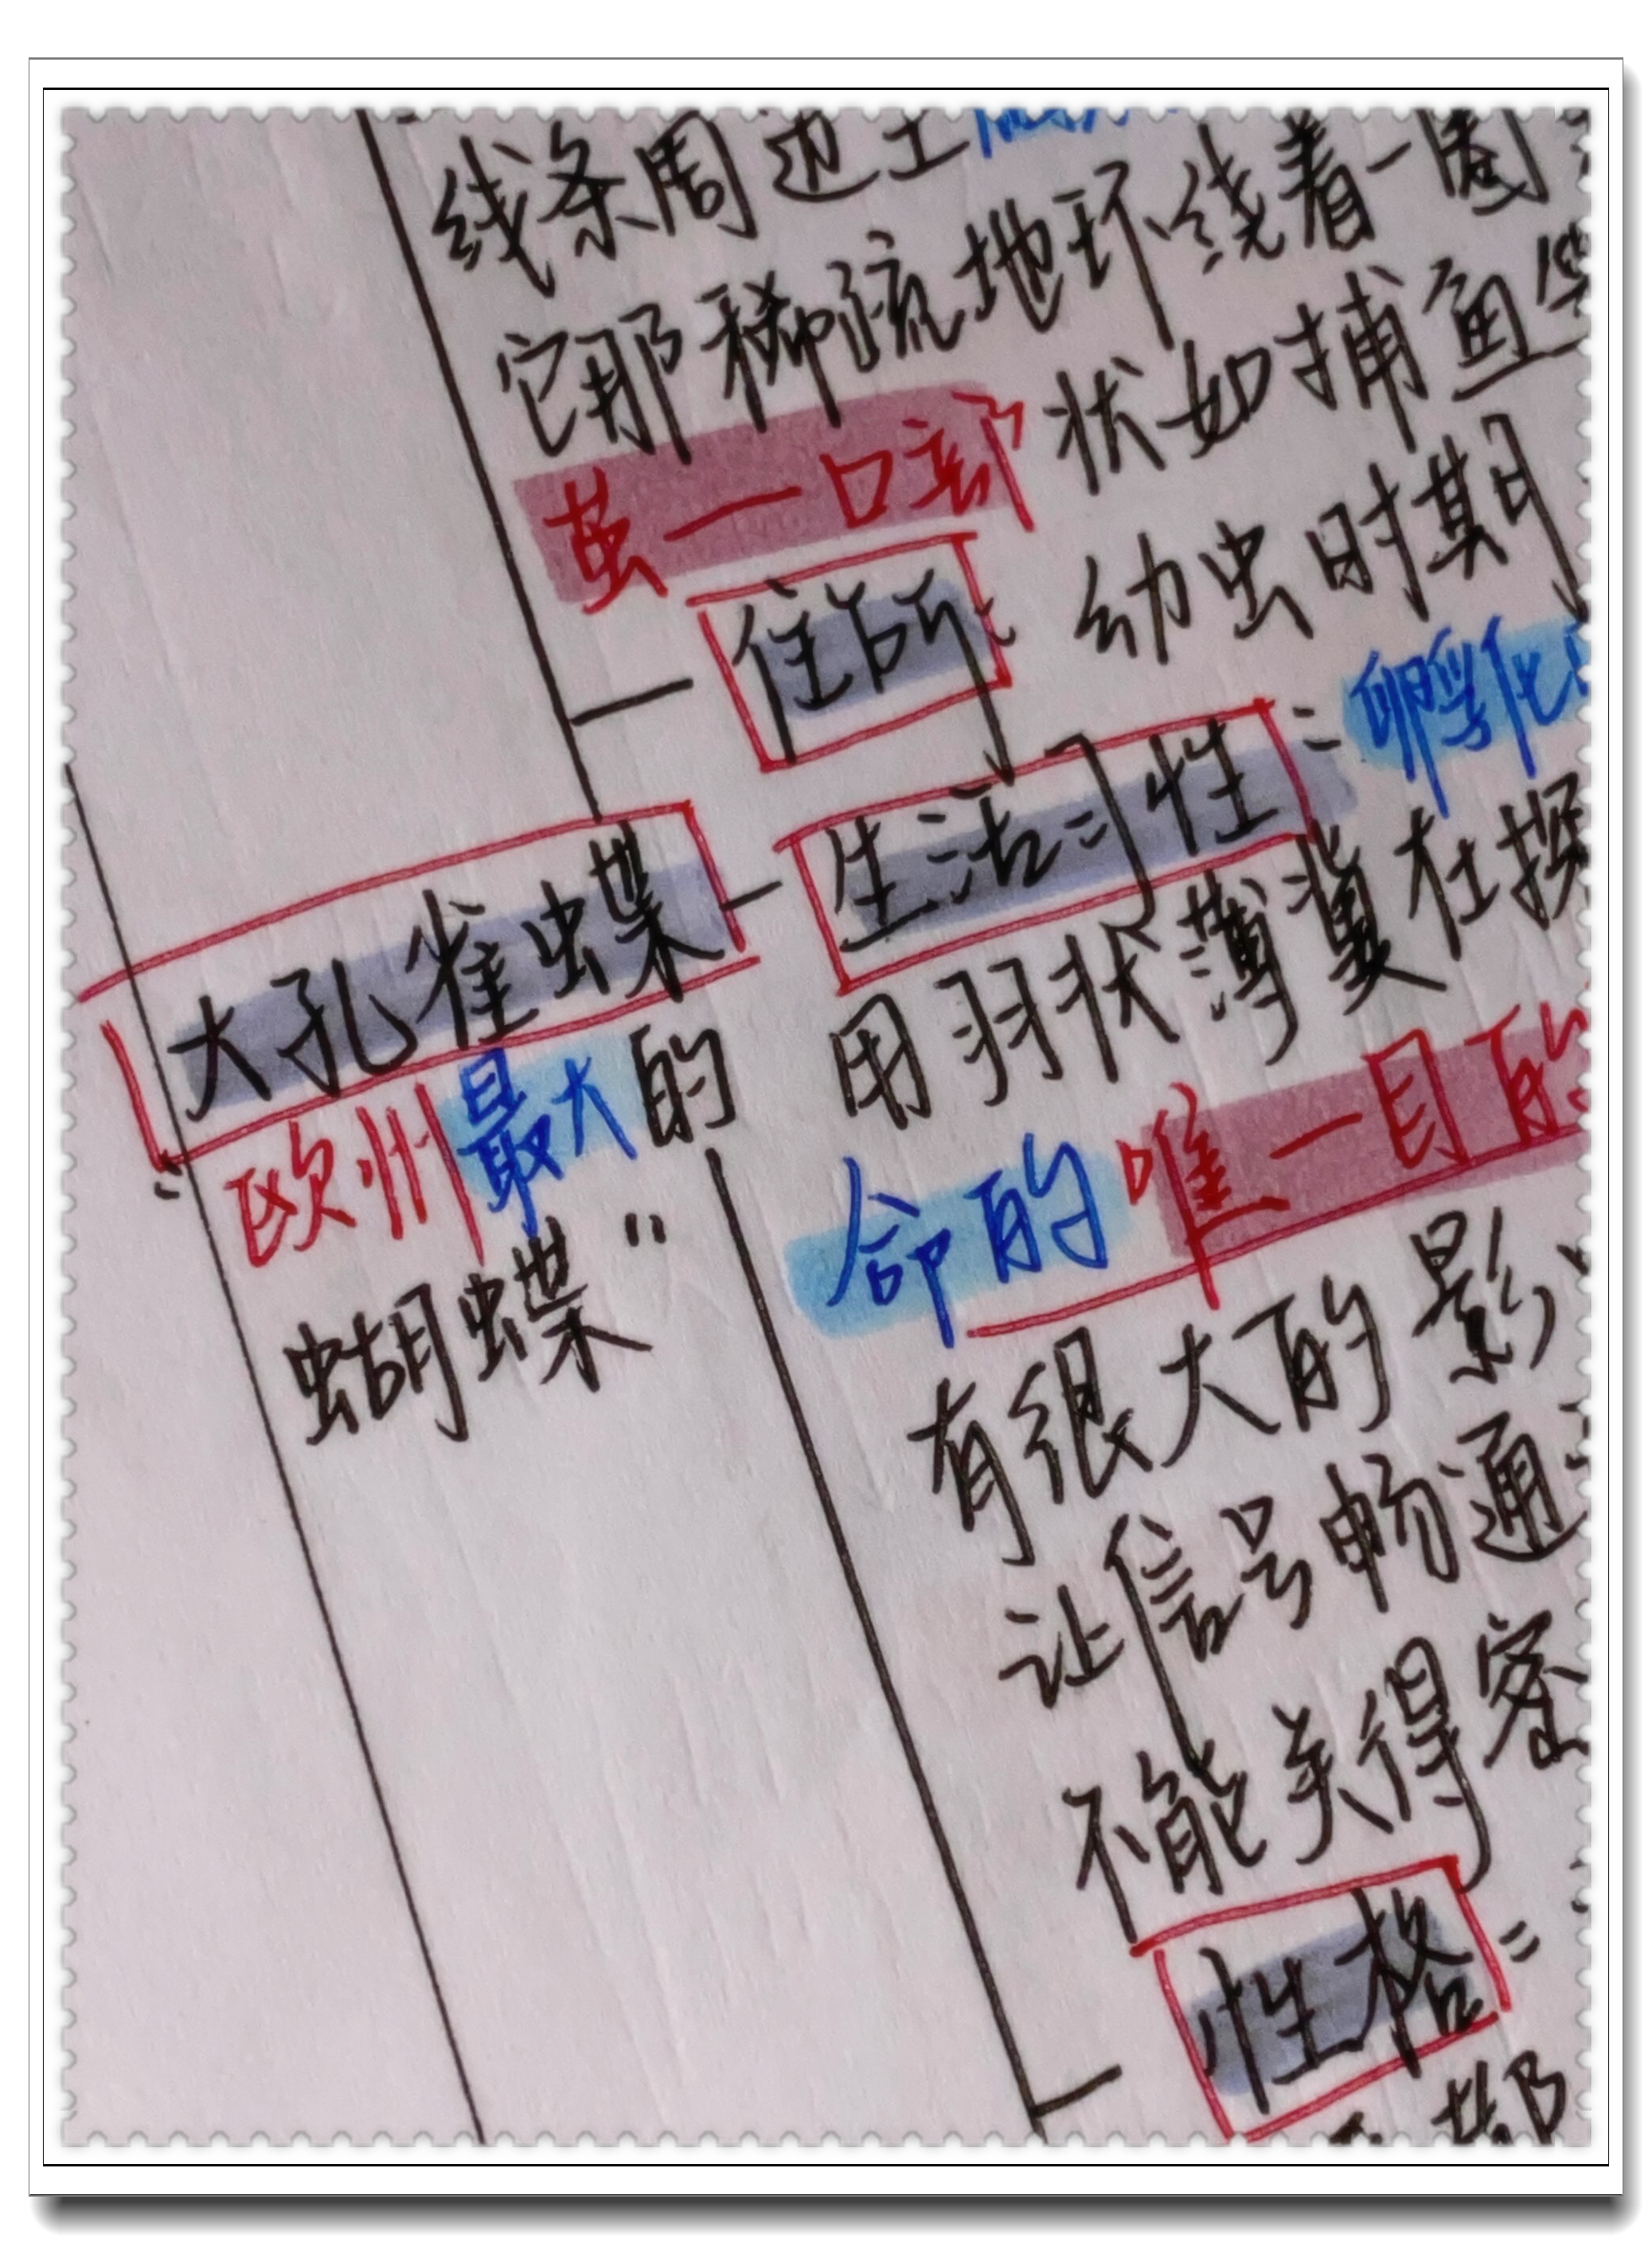 线条周边
它那稀疏地环绕着一圈
茧一口部 状如捕鱼
住所： 幼虫时期
生活习性：卵孵化
大孔雀蝶
用羽状薄翼在探
“欧州最大的
蝴蝶”
命的唯一目的
有很大的影
让信号畅通
不能关得密
性格：
都